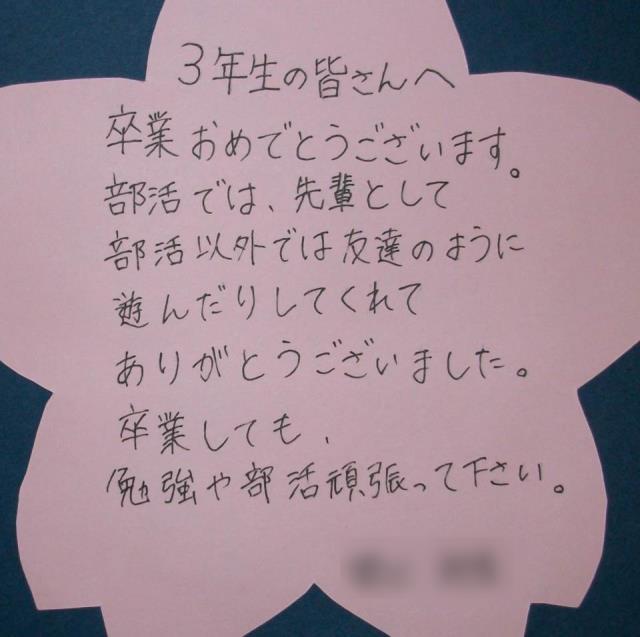 3年生の皆さんへ
卒業おめでとうございます。
部活では、先輩として
部活以外では友達のように
遊んだりしてくれて
ありがとうございました。
卒業しても、
勉強や部活頑張って下さい。